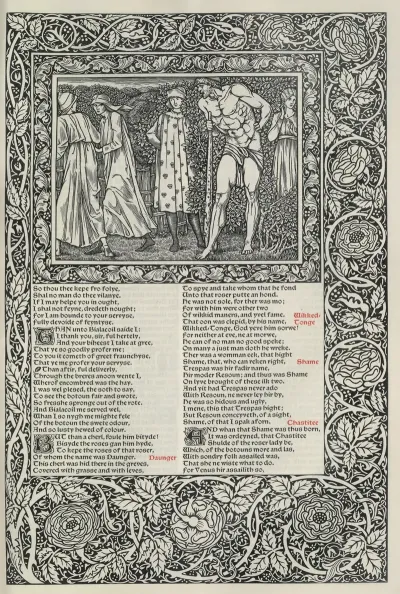 So thou thee kepe fro folye,
Shal no man do thee vilanye.
If I may helpe you in ought,
I shal not feyne, dredeth nought;
For I am bounde to your servyse,
Fully devoide of feyntyse.
THAN unto Bialacoil saide I:
I thank you, sir, ful hertely,
And your biheest I take at gree,
That ye so goodly profer me;
To you it cometh of greet fraunchyse,
That ye me profer your servyse.
Than after, ful deliverly,
Through the breres anoon wente I,
Wherof encombred was the hay.
I was wel plesed, the soth to say,
To see the botoun fair and swote,
So fresshe spronge out of the rote.
And Bialacoil me served wel,
Whan I so nygh me mighte fele
Of the botoun the swete odour,
And so lusty hewed of colour.
BUT than a cherl, foule him bityde!
Bisyde the roses gan him hyde,
To kepe the roses of that roser,
Of whom the name was Daunger.
Daunger
This cherl was hid there in the greves,
Covered with grasse and with leves,
To spye and take whom that he fond
Unto that roser putte an hond.
He was not sole, for ther was mo;
For with him were other two
Of wikkid maners, and yvel fame.
Wikked-
That oon was clepid, by his name,
Tonge
Wikked-Tonge, God yeve him sorwe!
For neither at eve, ne at morwe,
He can of no man no good speke;
On many a just man doth he wreke.
Ther was a womman eek, that hight
Shame, that, who can reken right,
Shame
Trespas was hir fadir name,
Hir moder Resoun; and thus was Shame
On lyve brought of these ilk two.
And yit had Trespas never ado
With Resoun, ne never ley hir by,
He was so hidous and ugly,
I mene, this that Trespas hight;
But Resoun conceyveth, of a sight,
Shame, of that I spak aforn.
Chastitee
AND whan that Shame was thus born,
It was ordeyned, that Chastitee
Shulde of the roser lady be,
Which, of the botouns more and las,
With sondry folk assailed was,
That she ne wiste what to do.
For Venus hir assailith so,